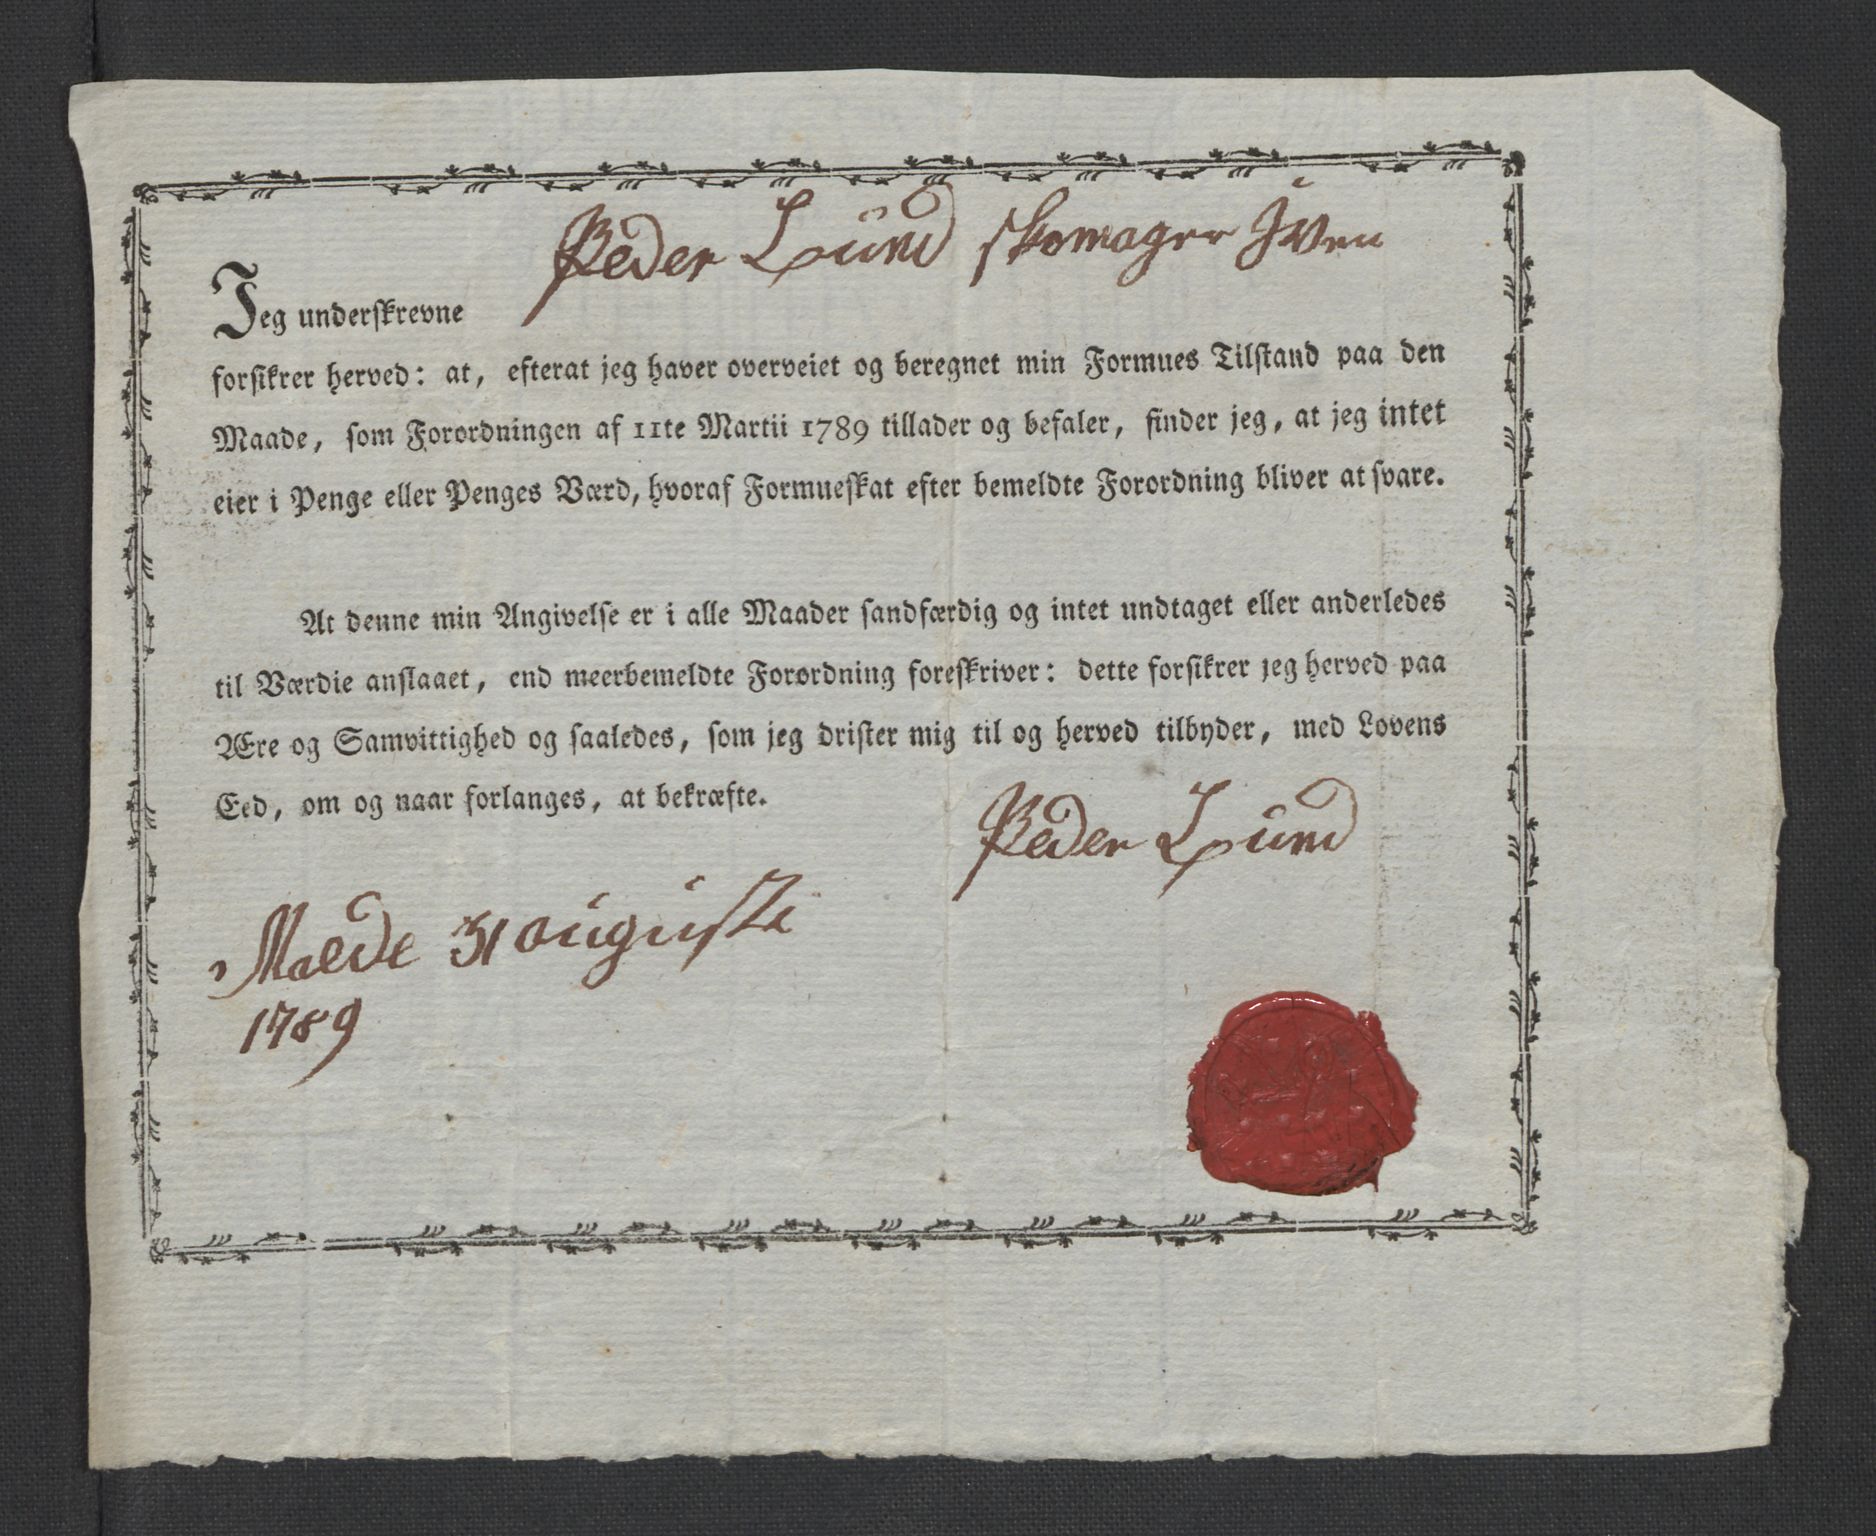 Peder Lund skomager
Jeg underskrevne
forsikrer herved: at, efterat jeg haver overveiet og beregnet min Formues Tilstand paa den
Maade, som Forordningen af 11te Martii 1789 tillader og befaler, finder jeg, at jeg intet
eier i Penge eller Penges Værd, hvoraf Formueskat efter bemeldte Forordning bliver at svare.
At denne min Angivelse er i alle Maader sandfærdig og intet undtaget eller anderledes
til Værdie anslaaet, end meerbemeldte Forordning foreskriver: dette forsikrer jeg herved paa
Ære og Samvittighed og saaledes, som jeg drister mig til og herved tilbyder, med Lovens
Eed, om og naar forlanges, at bekræfte.
Peder Lund
Molde 31 auguste
1789